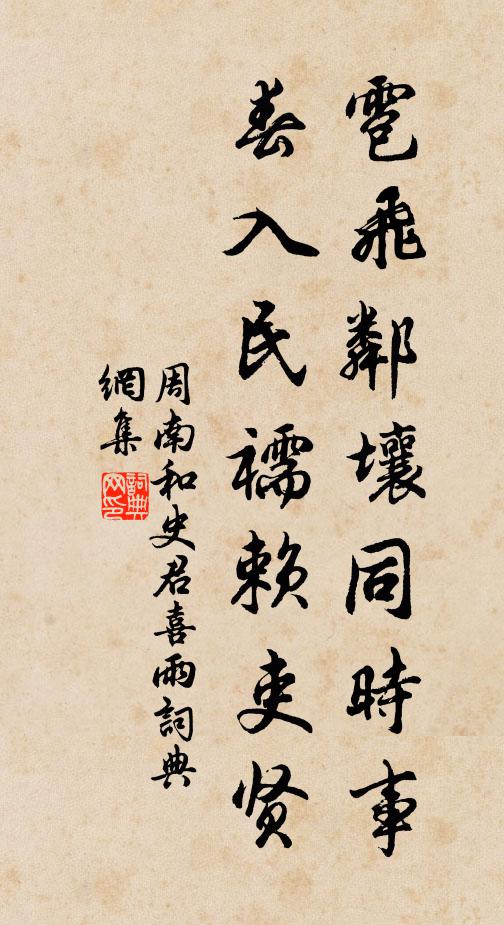 雹飛鄰壤同時事
春入民襦赖吏贤
周南和史君喜雨詞典
網集
詞典
网印